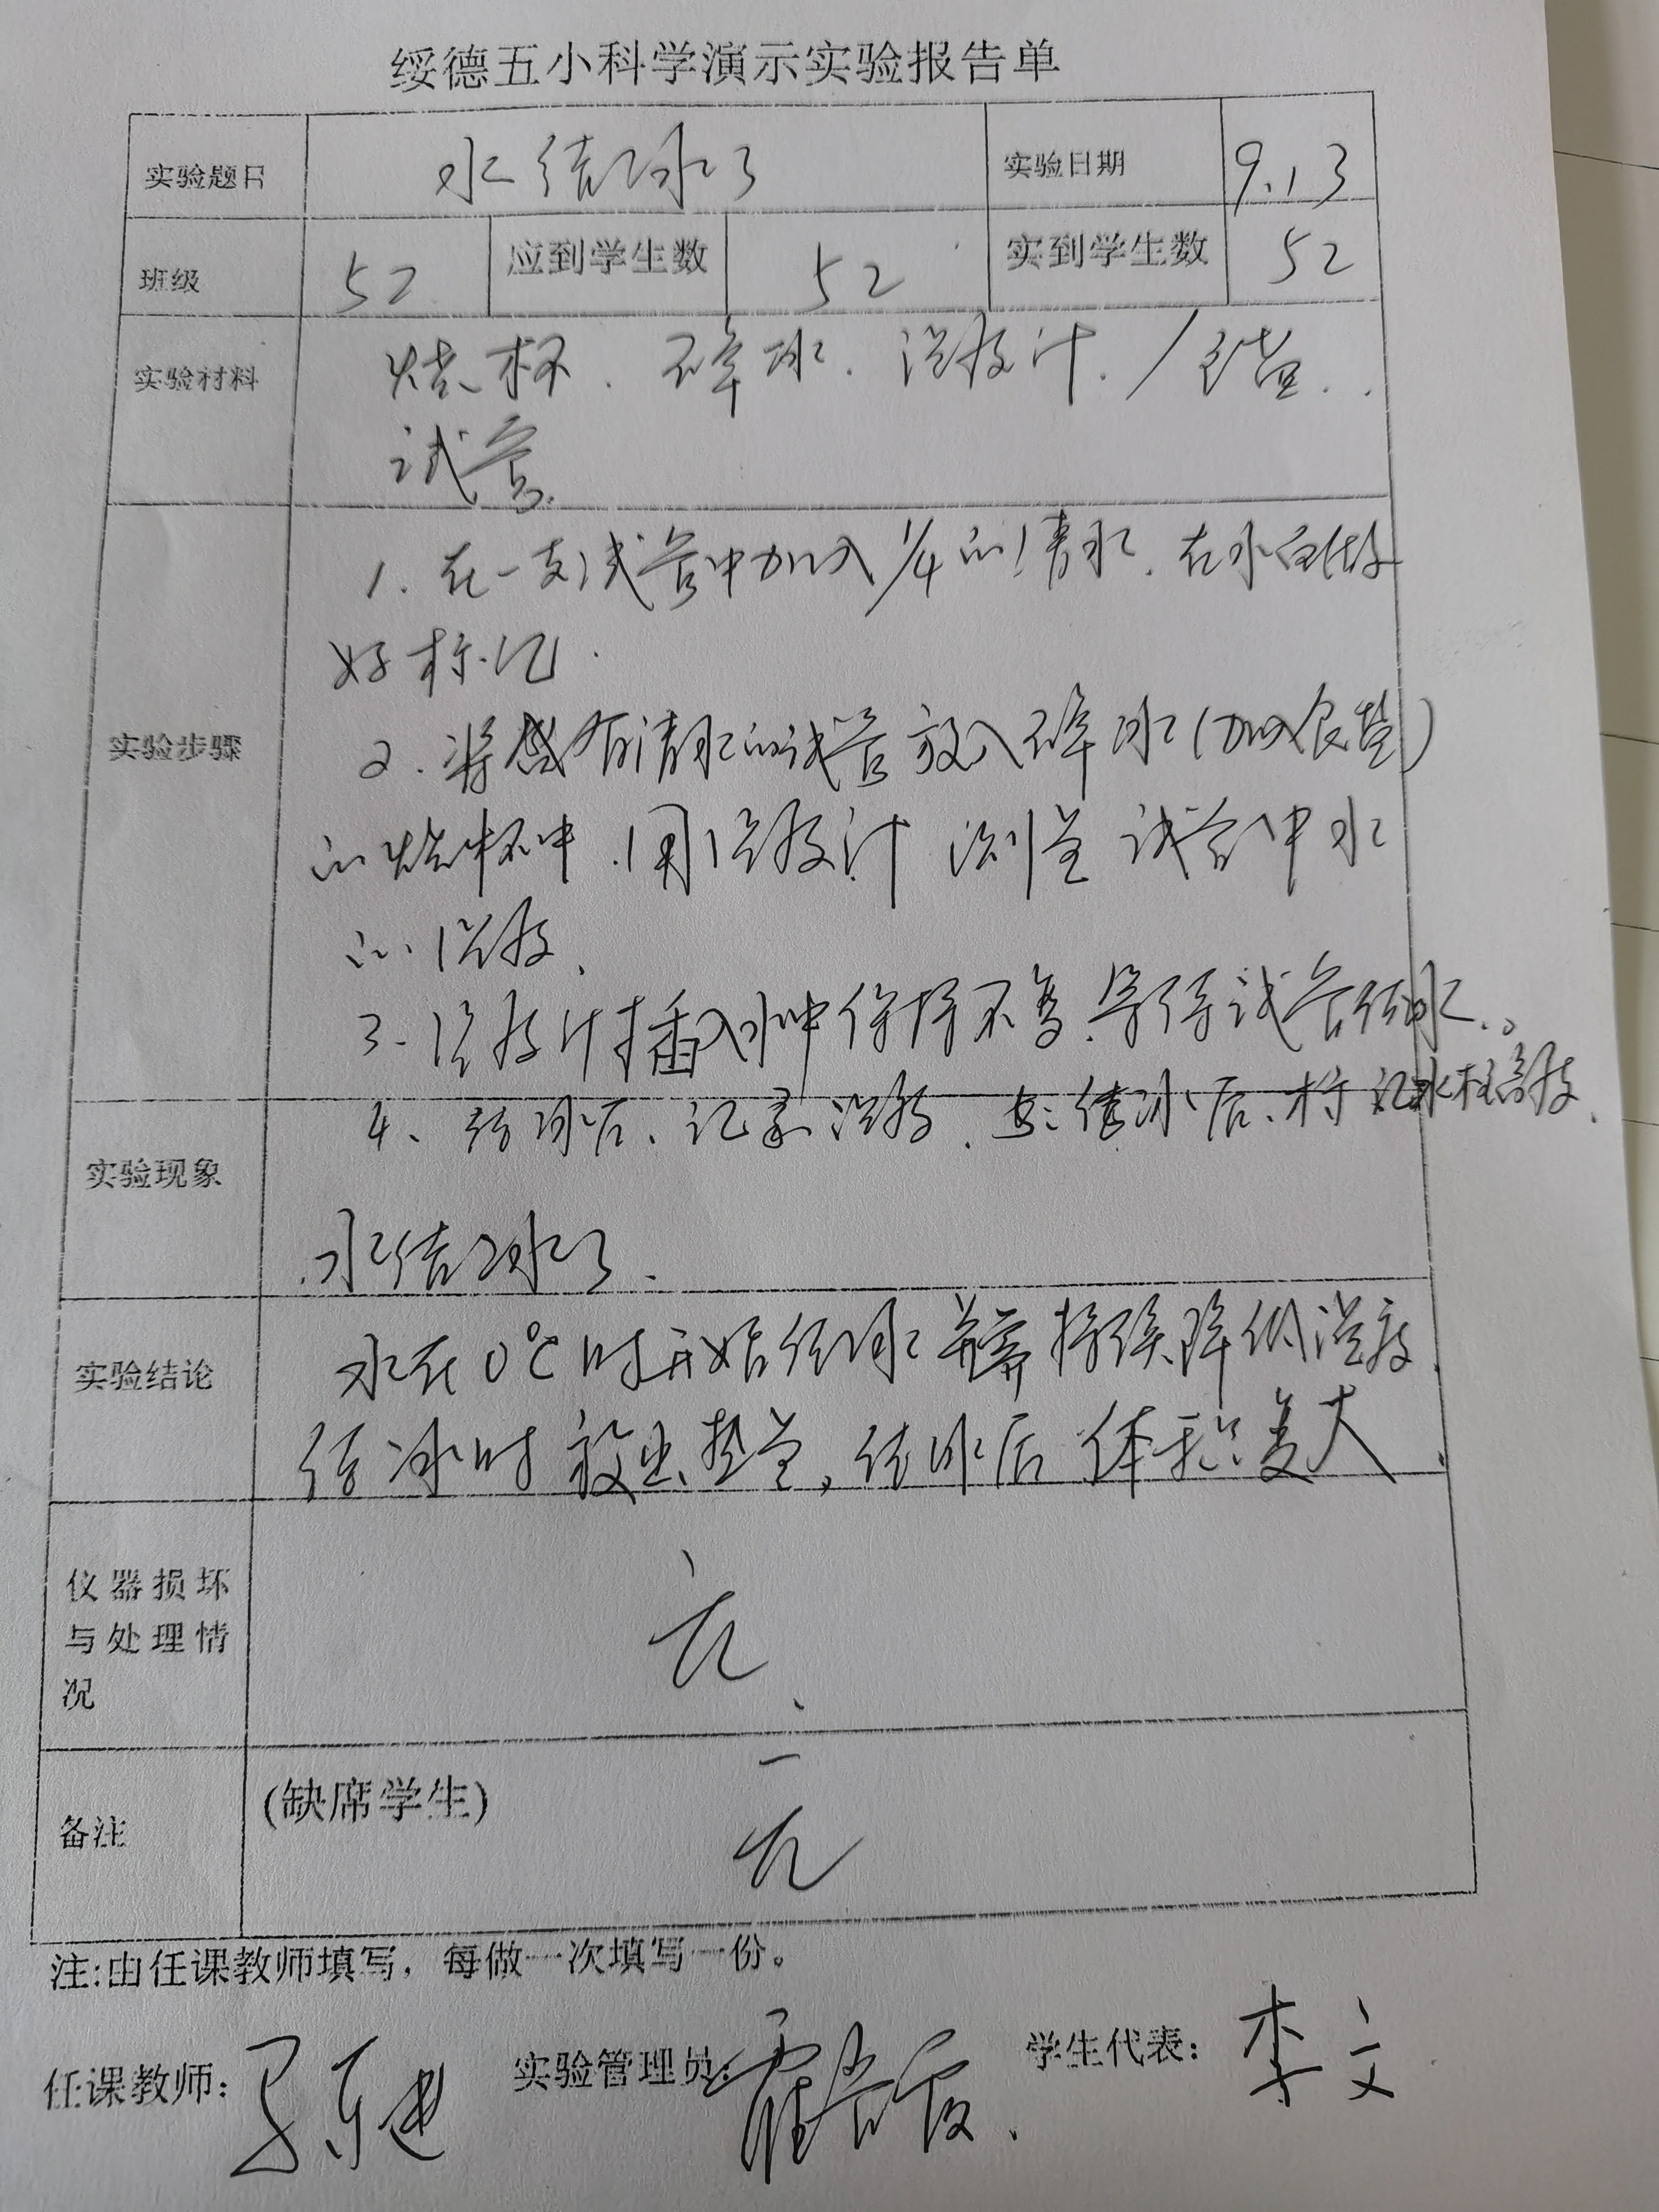 绥德五小科学演示实验报告单
实验题目 水结冰了 实验日期 9.13
班级 52 应到学生数 52 实到学生数 52
实验材料 烧杯、碎冰、温度计、食盐、
试管
实验步骤
1. 在一支试管中加入1/4的清水，在水面做
好标记.
2. 将盛有清水的试管放入碎冰(加入食盐)
的烧杯中，用温度计 测量 试管中水
的温度、
3. 温度计插入水中保持不变、等待试管结冰。
4、结冰后、记录温度、结冰后、标记冰柱高度、
实验现象
水结冰了.
实验结论 水在0℃时开始结冰 并需持续降低温度、
结冰时放出热量，结冰后体积变大、
仪器损坏
与处理情
况
无、
备注 (缺席学生) 无
注:由任课教师填写，每做一次填写一份。
任课教师: 实验管理员: 学生代表: 李文